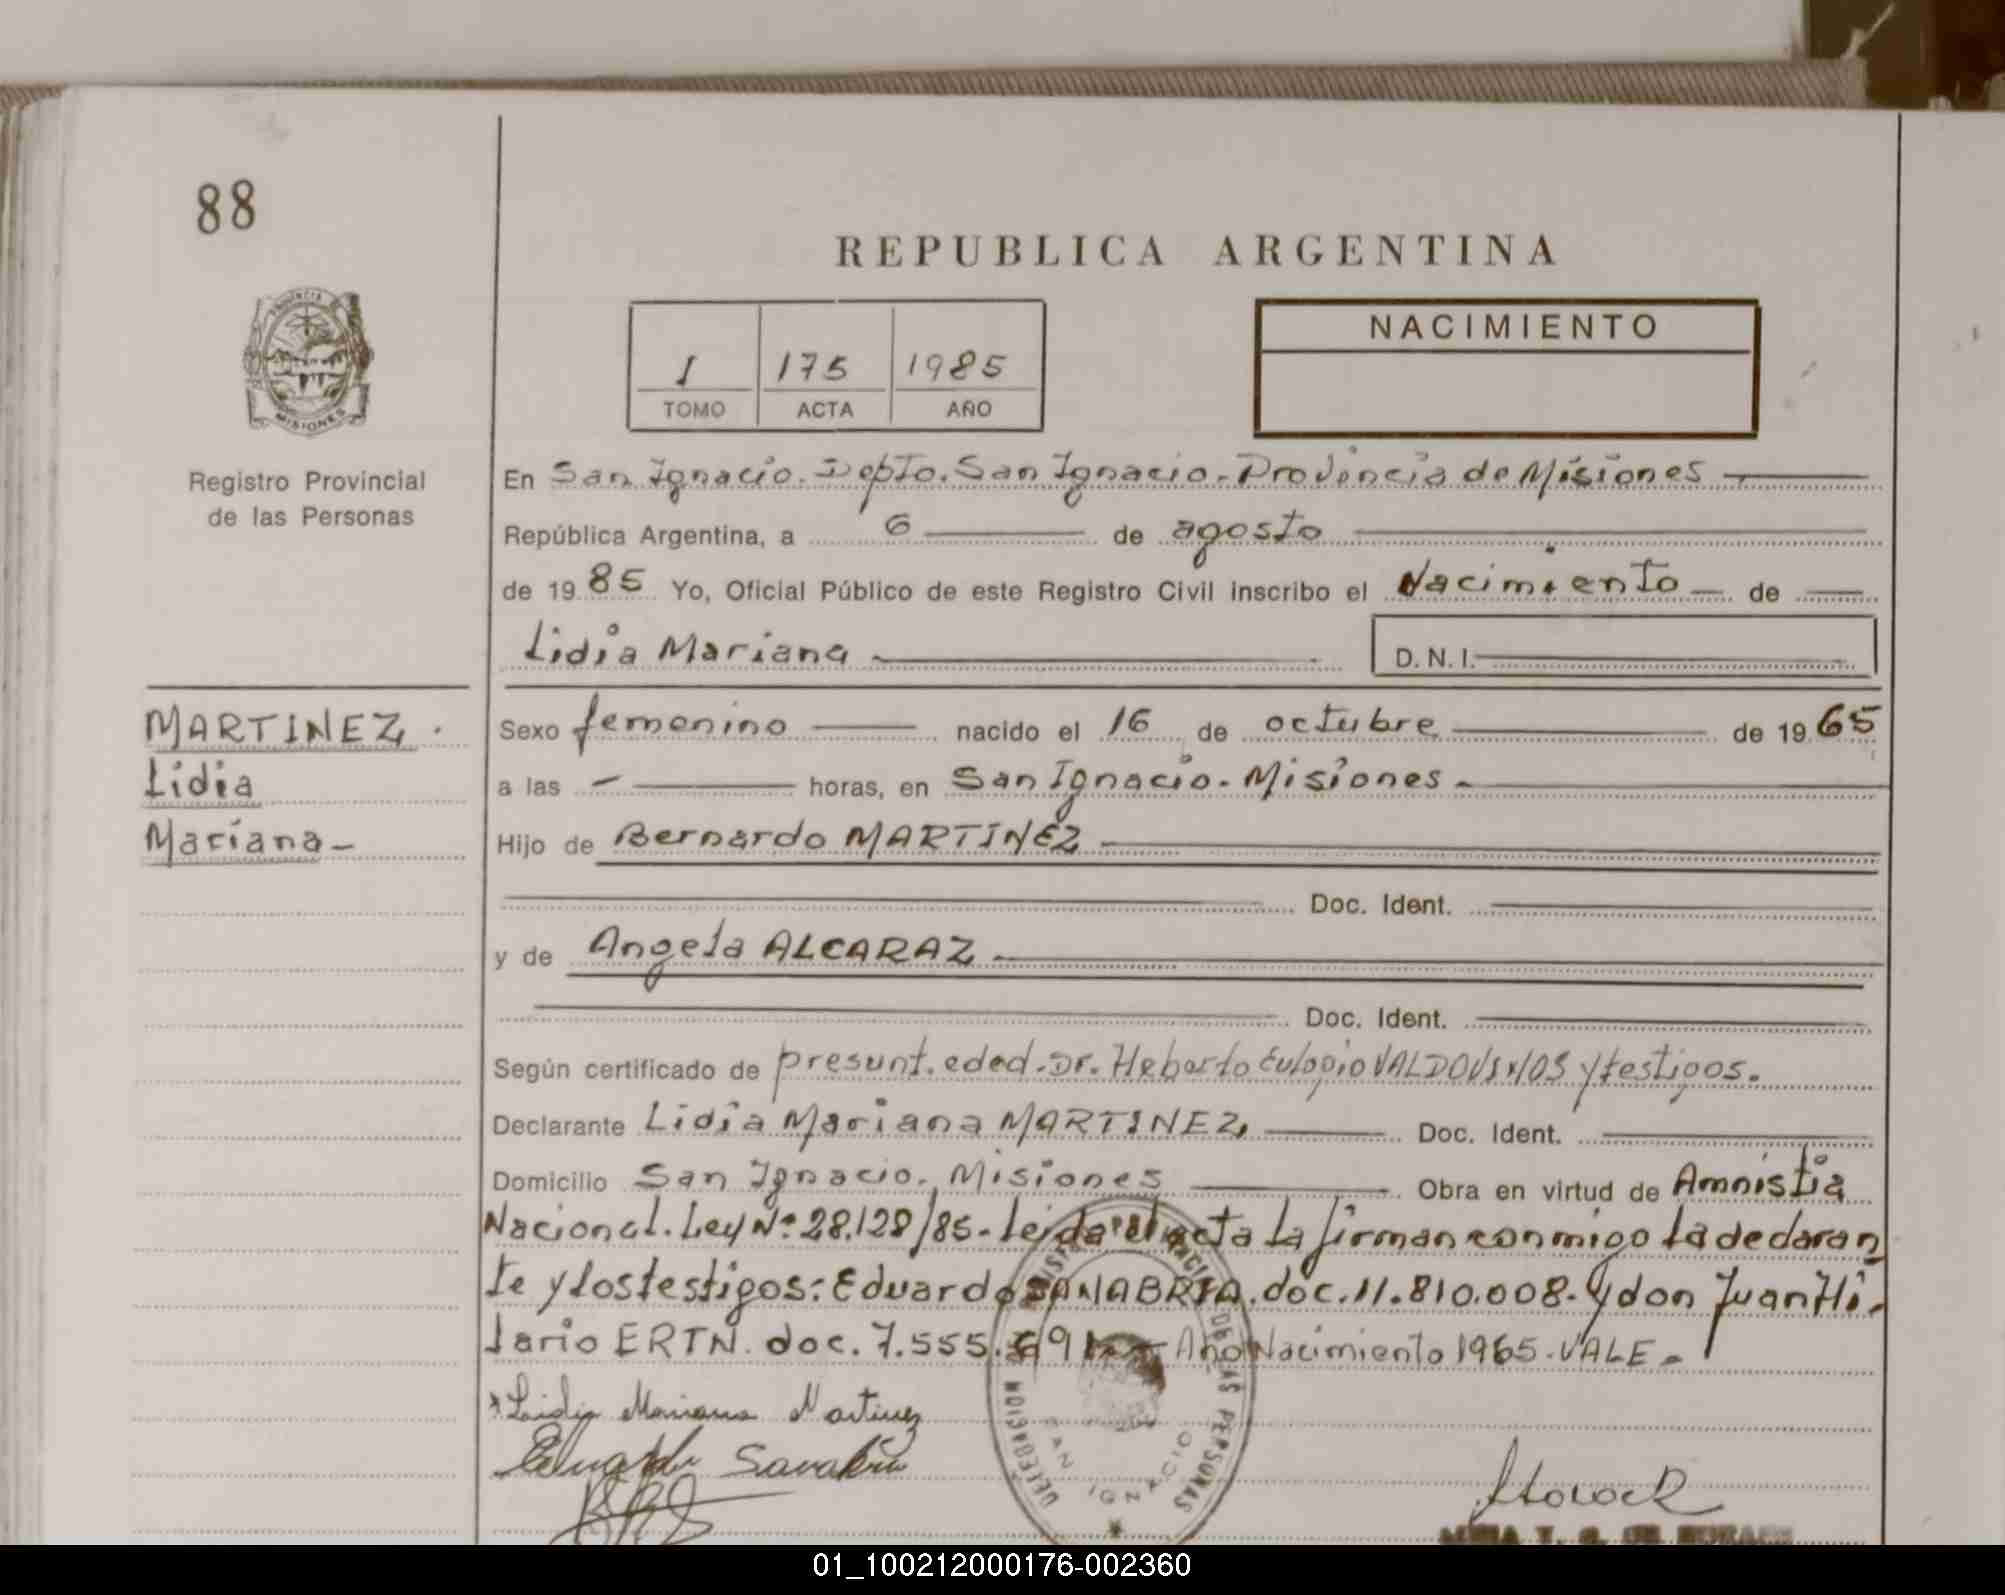 88
REPUBLICA ARGENTINA
1 175 1985
TOMO ACTA AÑO
NACIMIENTO
PROVINCIA DE
MISIONES
Registro Provincial
de las Personas
En San Ignacio. Depto. San Ignacio - Provincia de Misiones
República Argentina, a 6 de agosto
de 1985 Yo, Oficial Público de este Registro Civil inscribo el Nacimiento de
Lidia Mariana D.N.I.
MARTINEZ.
Lidia
Mariana-
Sexo femenino nacido el 16 de octubre de 1965
a las - horas, en San Ignacio - Misiones -
Hijo de Bernardo MARTINEZ
Doc. Ident.
y de Angela ALCARAZ
Doc. Ident.
Según certificado de presunt. edad. Dr. Heberto Eulogio y testigos.
Declarante Lidia Mariana MARTINEZ, Doc. Ident.
Domicilio San Ignacio. Misiones Obra en virtud de Amnistia
Nacional. Ley Nº 28.128/85 - Leida el acta la firman conmigo la declaran
te y los testigos: Eduardo SANABRIA. doc. 11.810.008. Y don Juan Hi-
lario ERTN. doc. 7.555. Año Nacimiento 1965. VALE -
Lidia Mariana Martinez
Eduardo Sanabria
DELEGACION DE LAS PERSONAS
SAN IGNACIO
01_100212000176-002360